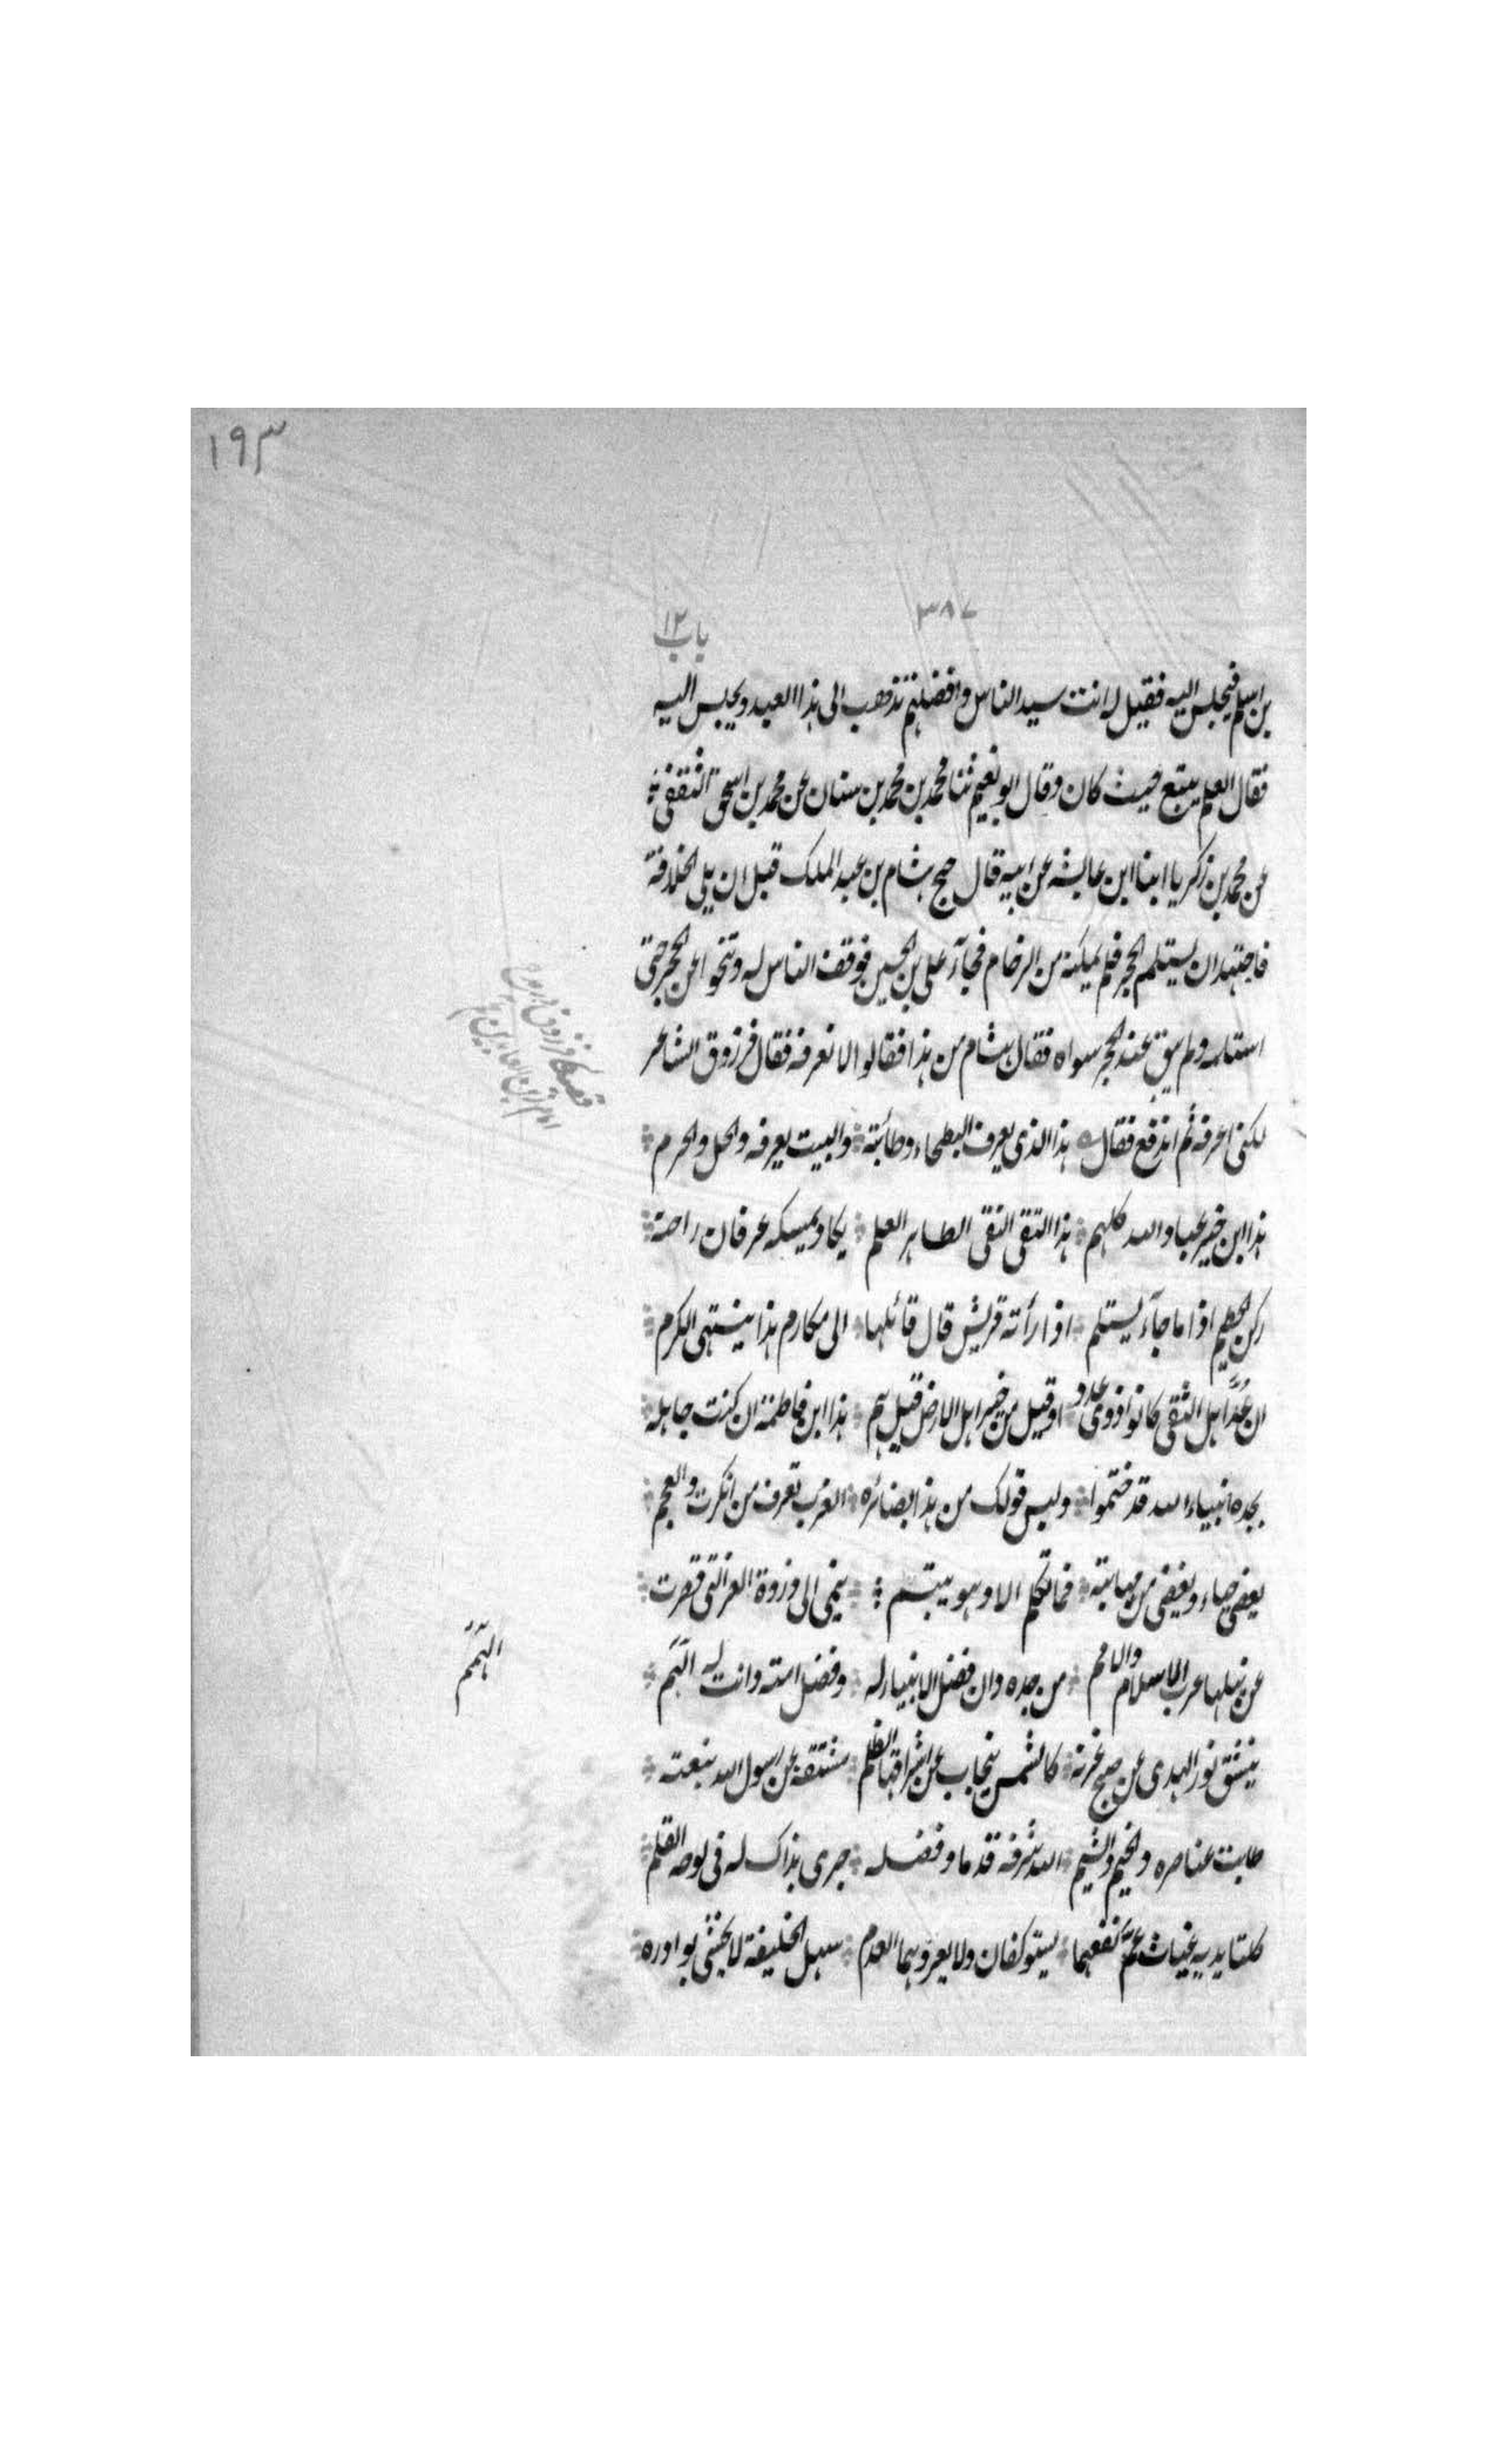 ١٩٣
٣٨٧
باب ١٢
بن اسلم فيجلس اليه فقيل له انت سيد الناس وافضلهم تذهب الى هذا العبد وتجلس اليه
فقال العلم يتبع حيث كان وقال ابو نعيم ثنا محمد بن محمد بن سنان عن محمد بن اسحق الثقفى
عن محمد بن زكريا ابنا ابن عايشه عن ابيه قال حج هشام بن عبد الملك قبل ان يلى الخلافة
فاجتهد ان يستلم الحجر فلم يمكنه من الزحام فجآء على بن الحسين فوقف الناس له وتنحوا عن الحجر حتى
استلمه ولم يبق عند الحجر سواه فقال هشام من هذا فقالوا لا نعرفه فقال فرزوق الشاعر
لكنى اعرفه ثم اندفع فقال هذا الذى يعرف البطحاء وطائته والبيت يعرفه والحل والحرم
هذا ابن خير عباد الله كلهم هذا التقى النقى الطاهر العلم يكاد يمسكه عرفان راحته
ركن الحطيم اذا ما جآء يستلم اذا رأته قريش قال قائلها الى مكارم هذا ينتهى الكرم
ان عُدَّ اهل التقى كانوا ذوى عدد او قيل من خير اهل الارض قيل هم هذا ابن فاطمة ان كنت جاهله
بجده انبياء الله قد ختموا وليس قولك من هذا بضائره العرب تعرف من انكرت والعجم
يغضى حياء ويغضى من مهابته فما تكلم الا وهو يبتسم ينمى الى ذروة العز التى قصرت
عن نيلها عرب الاسلام والامم من جده دان فضل الانبياء له وفضل امته دانت له الهمم
ينشق نور الهدى عن صبح غرته كالشمس ينجاب عن اشراقها الظلم مشتقة عن رسول الله نبعته
طابت عناصره والخيم والشيم الله شرفه قدما وفضله جرى بذاك له فى لوحه القلم
كلتا يديه غياث عمَّ نفعهما يستوكفان ولا يعروهما العدم سهل الخليقة لا تخشى بوادره
امام زين العابدين
الهمم